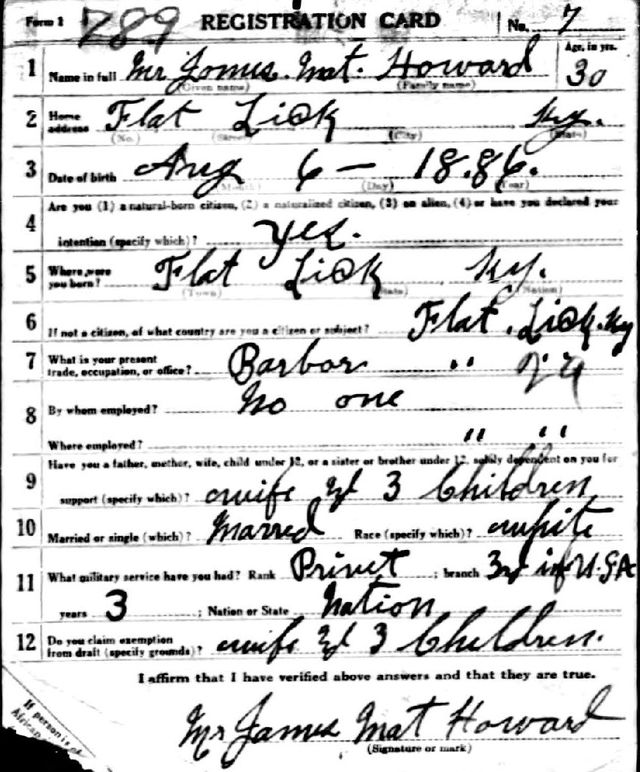 Form 1 789 REGISTRATION CARD No. 7
1 Name in full Mr Jomes. Mat. Howard Age, in yrs. 30
(Given name) (Family name)
2 Home address Flat Lick Ky.
(No.) (Street) (City) (State)
3 Date of birth Aug 6 — 18.86.
(Month) (Day) (Year)
Are you (1) a natural-born citizen, (2) a naturalized citizen, (3) an alien, (4) or have you declared your
4 intention (specify which)? yes.
5 Where were you born? Flat Lick Ky.
(Town) (State) (Nation)
6 If not a citizen, of what country are you a citizen or subject? Flat. Lick. Ky
7 What is your present trade, occupation, or office? Barbor "
8 By whom employed? No one
Where employed? " "
Have you a father, mother, wife, child under 12, or a sister or brother under 12, solely dependent on you for
9 support (specify which)? wife & 3 Children
10 Married or single (which)? Marred Race (specify which)? white
11 What military service have you had? Rank Privet ; branch 3rd inf U.S.A
years 3 ; Nation or State Nation
12 Do you claim exemption from draft (specify grounds)? wife & 3 Children.
I affirm that I have verified above answers and that they are true.
Mr James Mat Howard
(Signature or mark)
If person is of
African